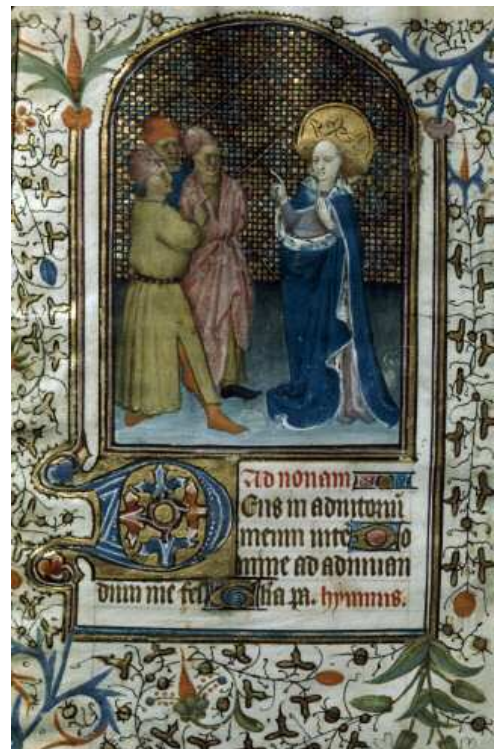 Ad nonam
DEus in adiutoriū
meum inte Do
mine ad adiuuan
dum me fes Glia pa. hymnus.